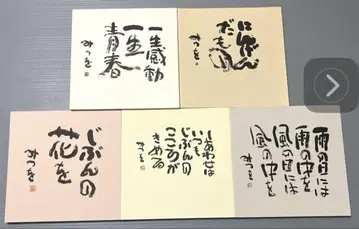 一生感動
一生
青春
みつを
にんげん
だもの
みつを
じぶんの
花を
みつを
しあわせは
いつも
じぶんの
こころが
きめる
みつを
雨の日には
雨の中を
風の日には
風の中を
みつを